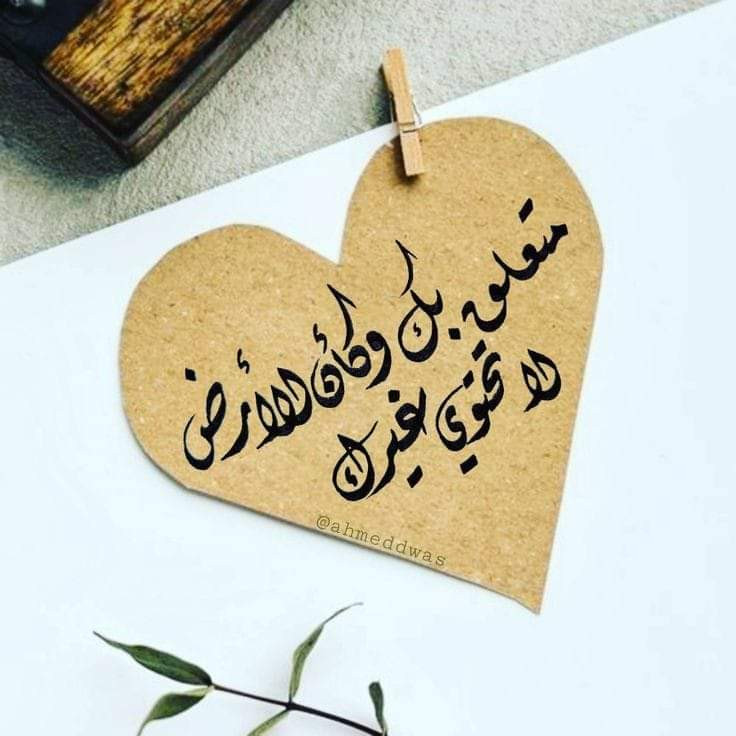 متعلق بك وكأن الأرض
لا تحتوي غيرك
@ahmeddwas